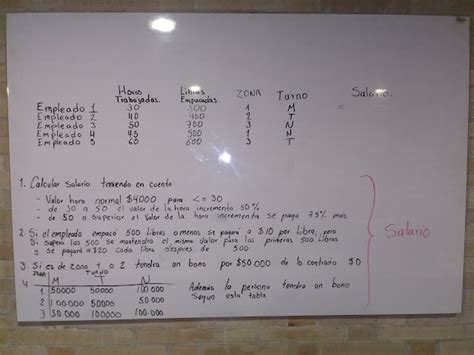 Horas Libras ZONA Turno Salario.
Trabajadas. Empacadas.
Empleado 1 30 300 1 M =
Empleado 2 40 400 2 T
Empleado 3 50 700 3 N
Empleado 4 45 500 1 N
Empleado 5 60 600 3 T
1. Calcular salario teniendo en cuenta
- Valor hora normal $4000 para <= 30
- de 30 a 50 el valor de la hora incrementa 50%
- de 50 o superior el valor de la hora incrementa se paga 75% mas
2. Si el empleado empacó 500 libras o menos se pagará a $10 por libra, pero
Si supera las 500 se mantendra el mismo valor para las primeras 500 libras
y se pagará $20 cada libra despues de 500
Salario
3. Si es de zona 1 o 2 tendra un bono por $50.000 de lo contrario $0
4. M TURNO T N
1 50000 50000 100000 Ademas la persona tendra un bono
2 100.000 50000 50000 Segun esta tabla
3 50.000 100000 100.000